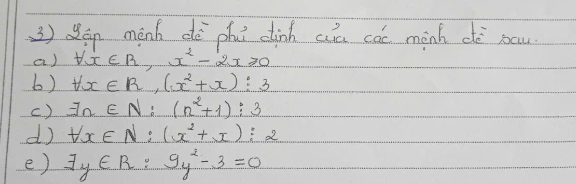 3) Lập mệnh đề phủ định của các mệnh đề sau.
a) ∀x ∈ R, x² - 2x ⩾ 0
b) ∀x ∈ R, (x²+x) ⋮ 3
c) ∃n ∈ N : (n²+1) ⋮ 3
d) ∀x ∈ N : (x²+x) ⋮ 2
e) ∃y ∈ R : 9y² - 3 = 0